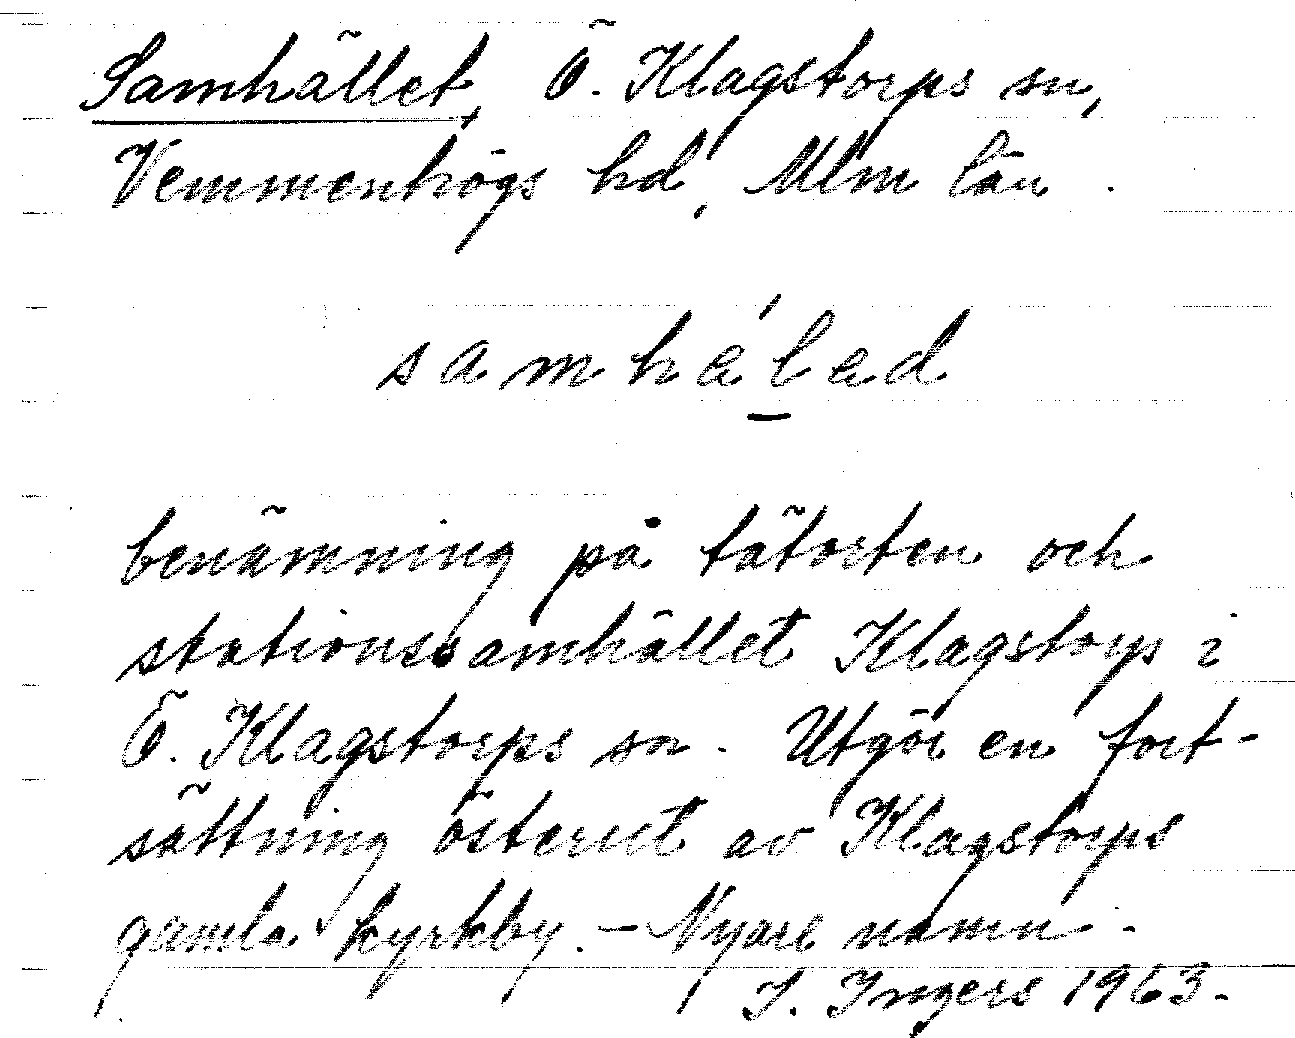 Samhället, Ö. Klagstorps sn,
Vemmenhögs hd, Mlm län.
samhälad
benämning på tätorten och
stationssamhället Klagstorp i
Ö. Klagstorps sn. Utgör en fort-
sättning österut av Klagstorps
gamla kyrkby. – Nyare namn.
I. Ingers 1963.